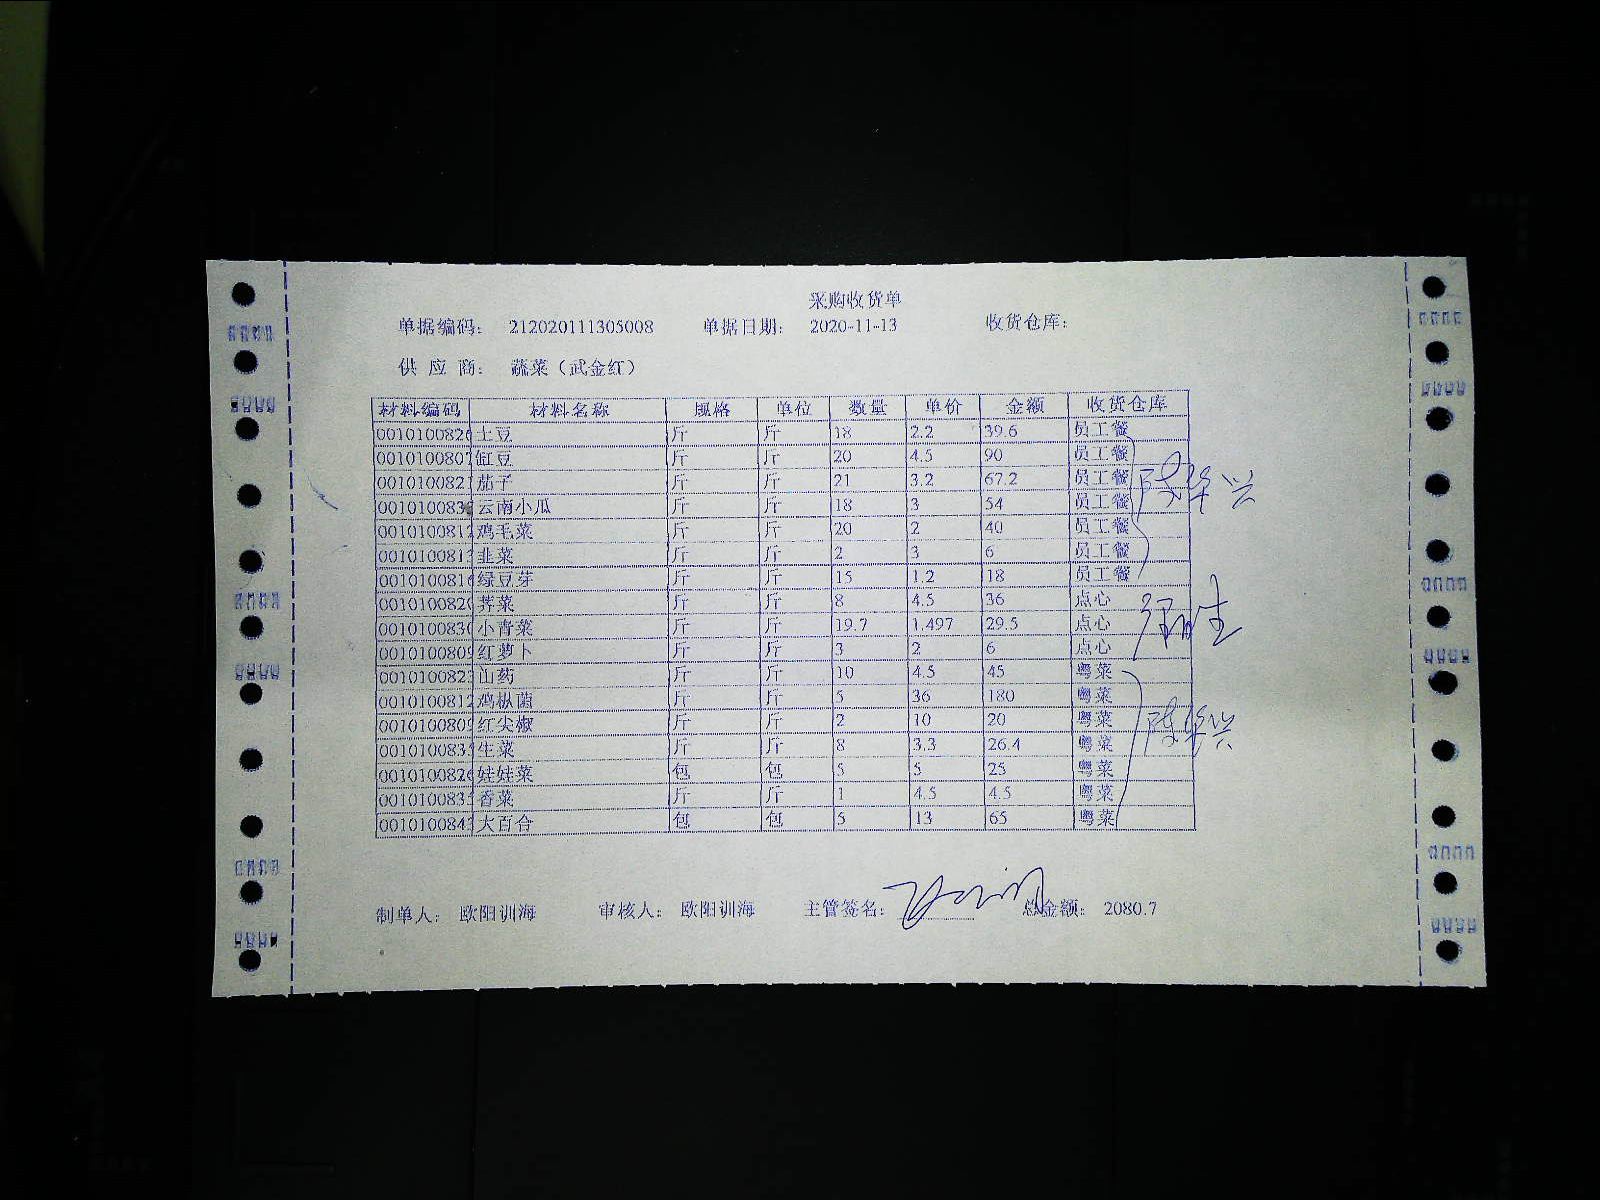 采购收货单
单据编码： 212020111305008 单据日期： 2020-11-13 收货仓库：
供 应 商： 蔬菜（武金红）
材料编码 材料名称 规格 单位 数量 单价 金额 收货仓库
0010100826 土豆 斤 斤 18 2.2 39.6 员工餐
0010100807 缸豆 斤 斤 20 4.5 90 员工餐
0010100821 茄子 斤 斤 21 3.2 67.2 员工餐
001010083 云南小瓜 斤 斤 18 3 54 员工餐
0010100812 鸡毛菜 斤 斤 20 2 40 员工餐
0010100813 韭菜 斤 斤 2 3 6 员工餐
0010100816 绿豆芽 斤 斤 15 1.2 18 员工餐
0010100820 荠菜 斤 斤 8 4.5 36 点心
0010100830 小青菜 斤 斤 19.7 1.497 29.5 点心
0010100809 红萝卜 斤 斤 3 2 6 点心
0010100823 山药 斤 斤 10 4.5 45 粤菜
0010100812 鸡枞菌 斤 斤 5 36 180 粤菜
0010100809 红尖椒 斤 斤 2 10 20 粤菜
001010083 生菜 斤 斤 8 3.3 26.4 粤菜
0010100826 娃娃菜 包 包 5 5 25 粤菜
001010083 香菜 斤 斤 1 4.5 4.5 粤菜
001010084 大百合 包 包 5 13 65 粤菜
陈华兴
陈华兴
制单人： 欧阳训海 审核人： 欧阳训海 主管签名： 总金额： 2080.7